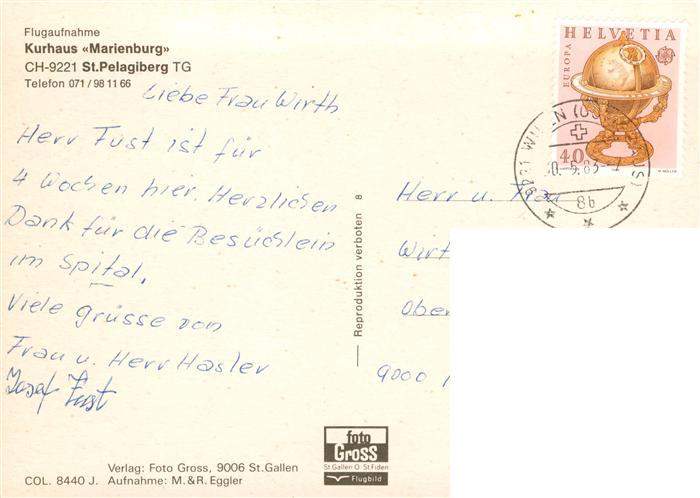 Flugaufnahme
Kurhaus «Marienburg»
CH-9221 St.Pelagiberg TG
Telefon 071 / 98 11 66
Liebe Frau Wirth
Herr Fust ist für
4 Wochen hier. Herzlichen
Dank für die Besüchlein
im Spital.
Viele grüsse von
Frau u. Herr Hasler
Josef Fust
Reproduktion verboten 8
HELVETIA
EUROPA
CEPT
40
M. MÜLLER
86
Herr u. Frau
Wirt
Ober
9000
foto
Gross
St Gallen O St Fiden
Flugbild
Verlag: Foto Gross, 9006 St.Gallen
COL. 8440 J. Aufnahme: M.&R. Eggler